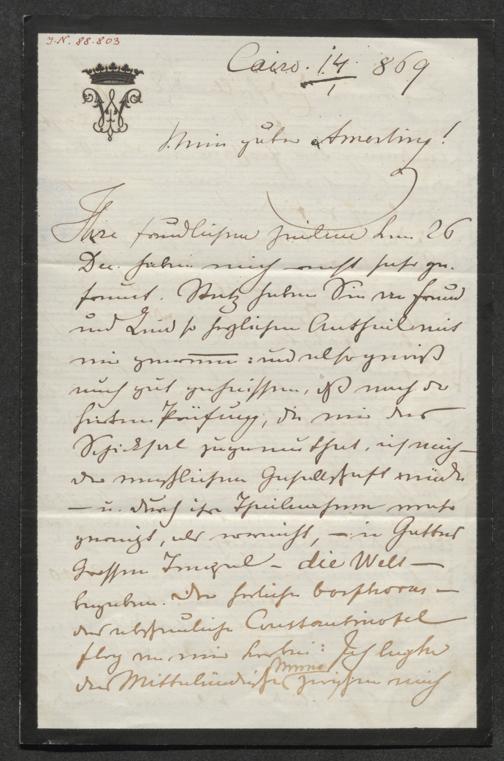 J.N. 88.803
Cairo. 14/1 869
Mein guter Amerling!
Ihre freundlichen Zeilen vom 26
Dec. haben mich recht sehr ge-
freut. Stets haben Sie an Freud
und Leid so herzlichen Antheil mit
mir genommen: und also gewiß
auch gut geheissen, daß nach der
harten Prüfung, die mir das
Schicksal zugemuthet, ich mich –
der menschlichen Gesellschaft müde
– u. durch ihre Theilnahme mehr
gereizt, als – in Gottes
grossen Tempel – die Welt –
begeben. Der herrliche Bosphorus –
das Constantinopel
flog an mir vorbei: Ich legte
das Mittelländische Meer zwischen mich